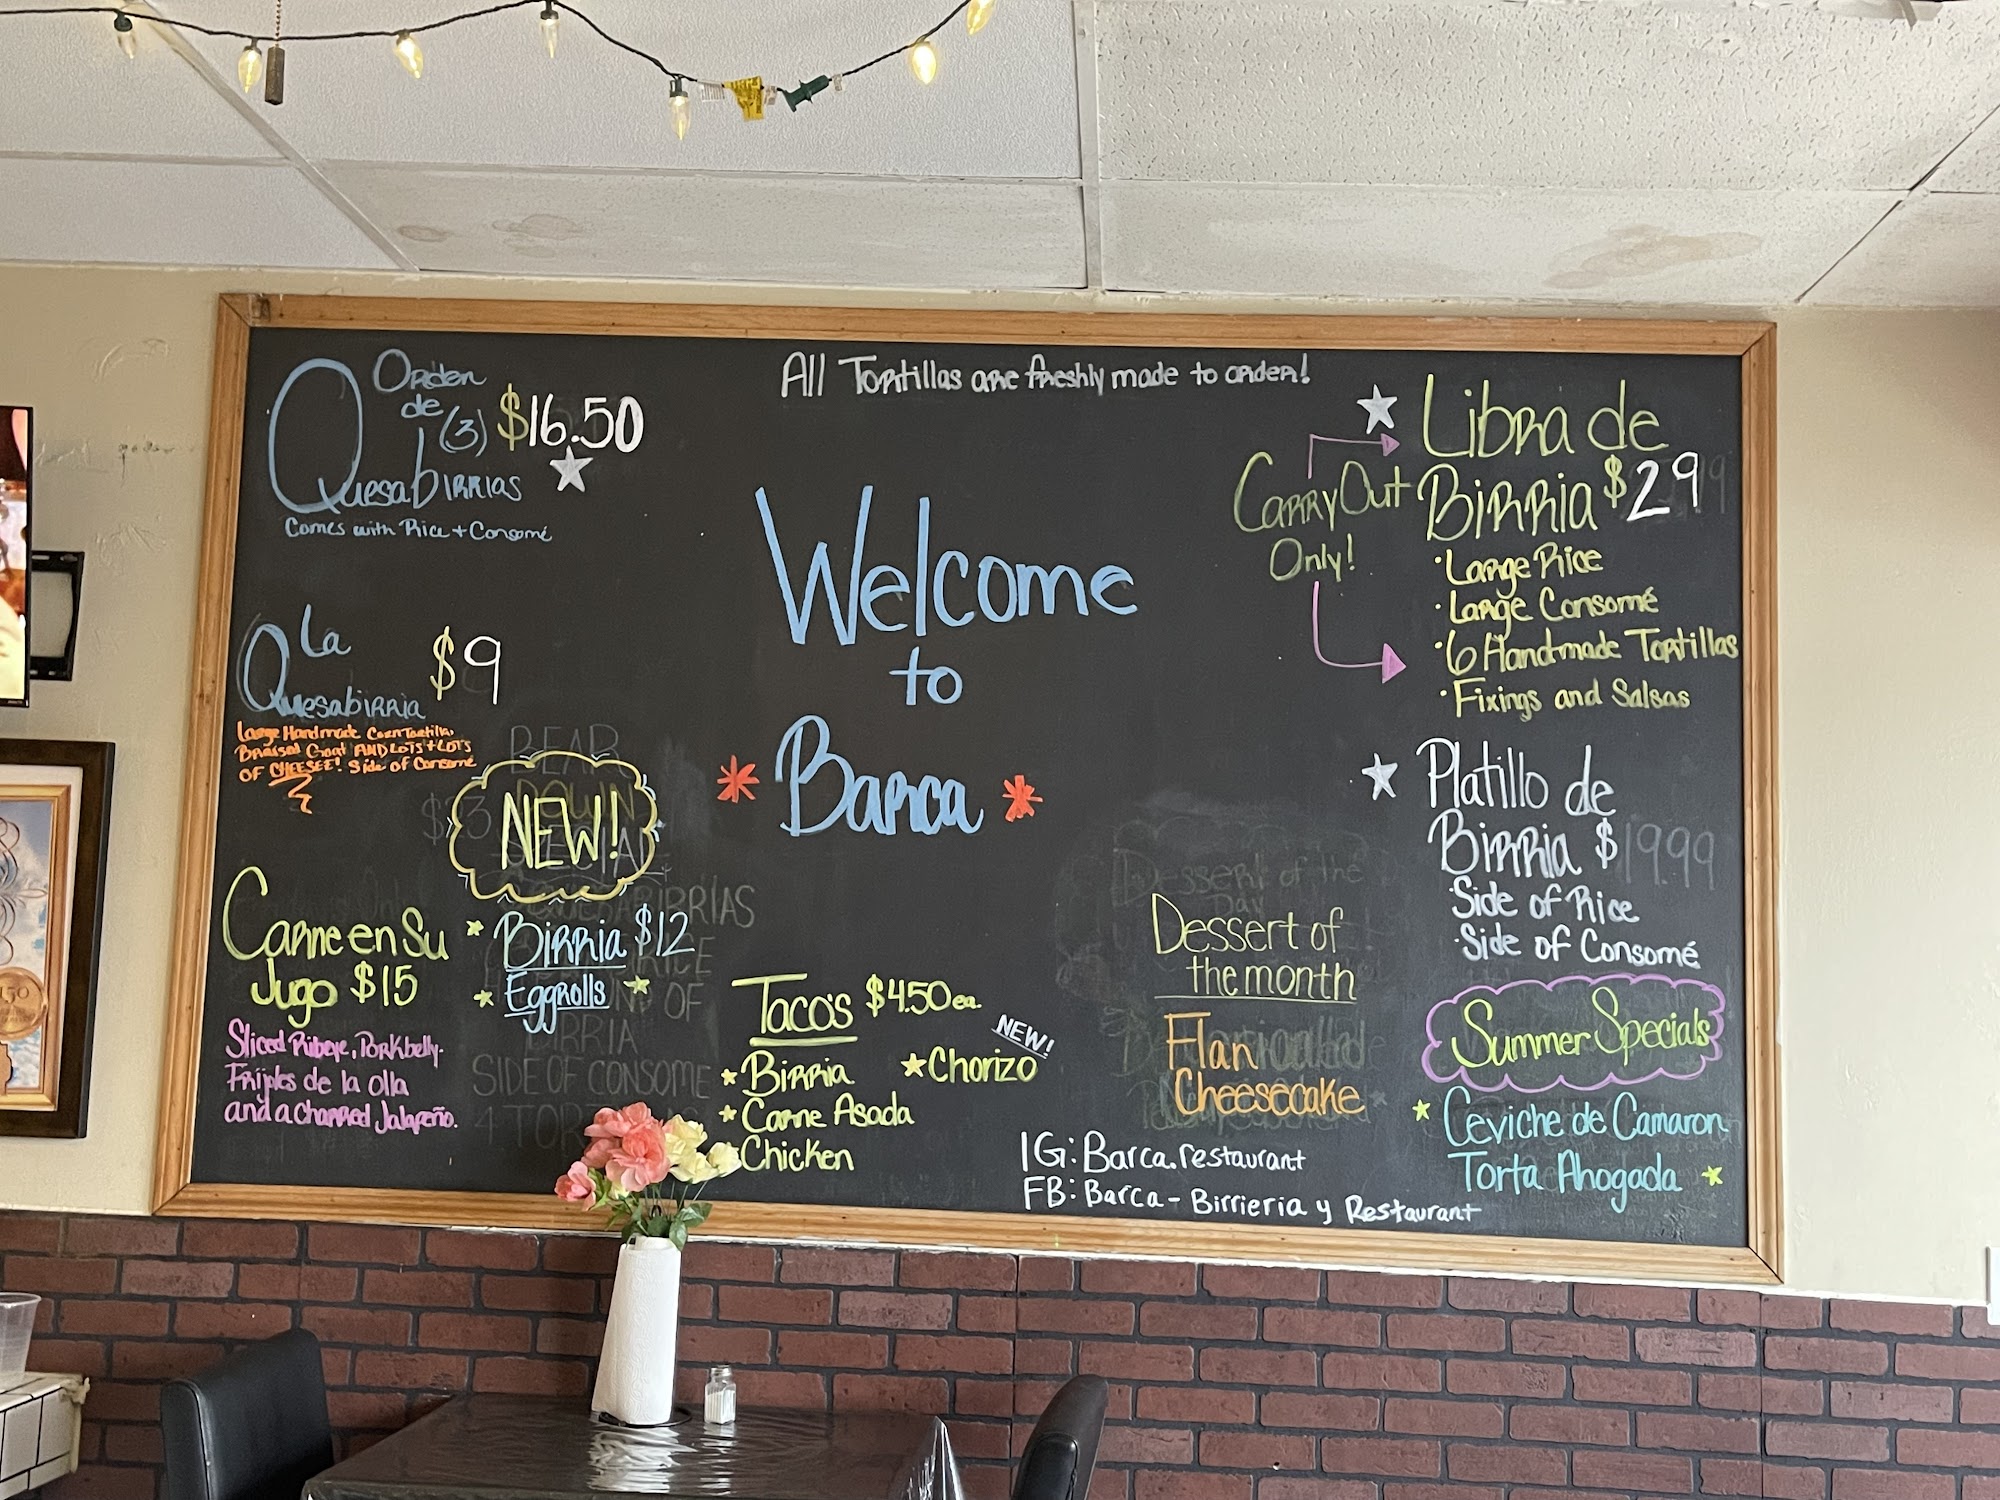 All Tortillas are freshly made to order!
Orden
de (3) $16.50
Quesabirrias
Comes with Rice + Consomé
La
Quesabirria $9
Large Handmade Corn Tortilla,
Braised Goat AND LOTS + LOTS
OF CHEESEE! Side of Consomé
NEW!
Carne en Su
Jugo $15
Sliced Ribeye, Porkbelly.
Frijoles de la olla
and a charred Jalapeño.
Birria $12
Eggrolls
Welcome
to
Barca
Taco's $4.50 ea.
Birria
Carne Asada
Chicken
NEW!
Chorizo
Dessert of
the month
Flan
Cheesecake
IG: Barca.restaurant
FB: Barca - Birrieria y Restaurant
Carry Out
Only!
Libra de
Birria $29
· Large Rice
· Large Consomé
· 6 Handmade Tortillas
· Fixings and Salsas
Platillo de
Birria $19.99
· Side of Rice
· Side of Consomé
Summer Specials
Ceviche de Camaron
Torta Ahogada
BEAR
DOWN
SPECIAL
SIDE OF CONSOME
Dessert of the
Day